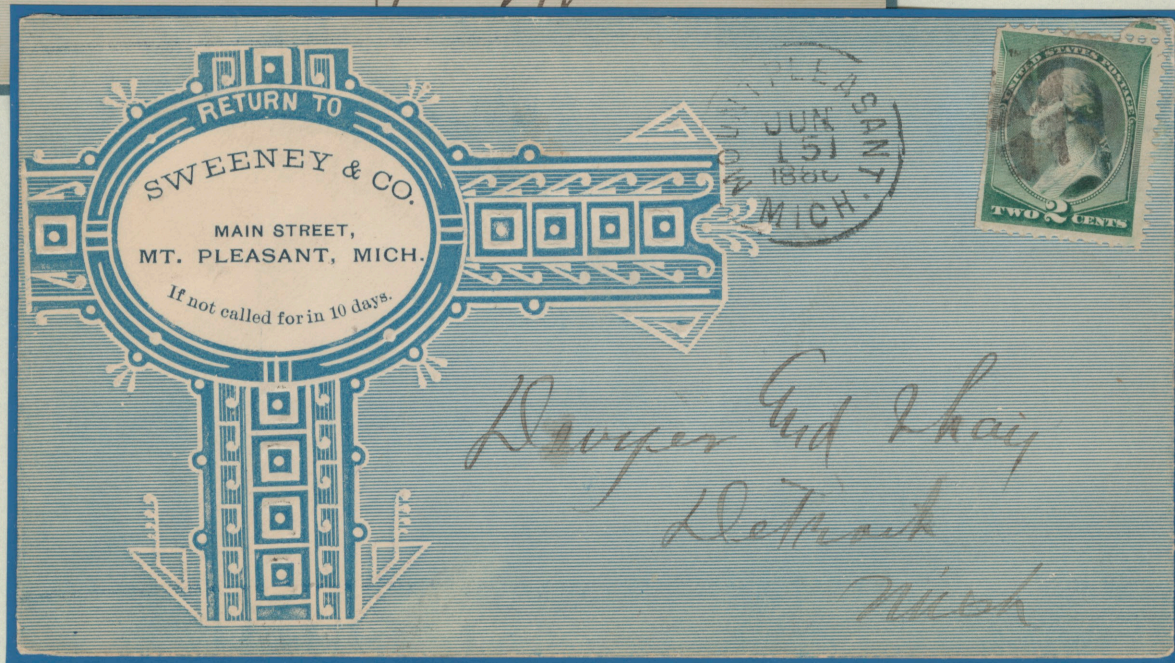 RETURN TO
SWEENEY & CO.
MAIN STREET,
MT. PLEASANT, MICH.
If not called for in 10 days.
MOUNT PLEASANT.
JUN
MICH.
UNITED STATES POSTAGE
TWO 2 CENTS
Detroit
Mich